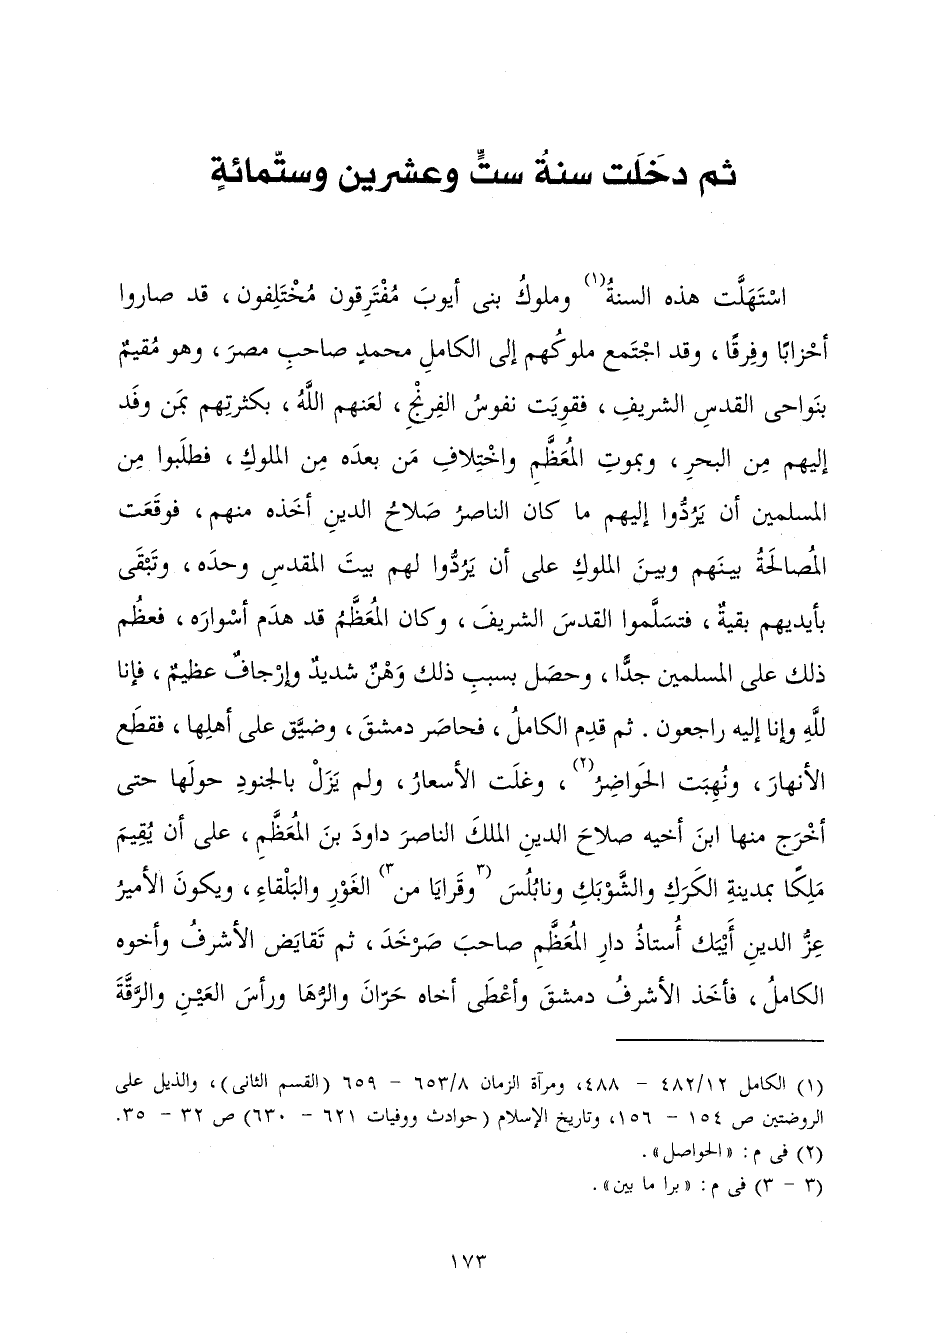 ثم دخَلَت سنةُ ستٍّ وعشرين وستّمائةٍ
اسْتَهَلَّت هذه السنةُ(١) وملوكُ بنى أيوبَ مُفْتَرِقون مُخْتَلِفون ، قد صاروا
أحْزابًا وفِرقًا ، وقد اجْتَمع ملوكُهم إلى الكاملِ محمدٍ صاحبِ مصرَ ، وهو مُقيمٌ
بنَواحى القدسِ الشريفِ ، فقوِيَت نفوسُ الفِرنْجِ ، لعَنهم اللَّهُ ، بكثرتِهم بمَن وفَد
إليهم مِن البحرِ ، وبموتِ المُعَظَّمِ واخْتِلافِ مَن بعدَه مِن الملوكِ ، فطلَبوا مِن
المسلمين أن يَرُدُّوا إليهم ما كان الناصرُ صَلاحُ الدينِ أخَذه منهم ، فوقَعَت
المُصالحَةُ بينَهم وبينَ الملوكِ على أن يَرُدُّوا لهم بيتَ المقدسِ وحدَه ، وتَبْقَى
بأيديهم بقيةٌ ، فتسَلَّموا القدسَ الشريفَ ، وكان المُعَظَّمُ قد هدَم أسْوارَه ، فعظُم
ذلك على المسلمين جدًّا ، وحصَل بسببِ ذلك وَهْنٌ شديدٌ وإرْجافٌ عظيمٌ ، فإنا
للَّهِ وإنا إليه راجعون . ثم قدِم الكاملُ ، فحاصَر دمشقَ ، وضيَّق على أهلِها ، فقطَع
الأنهارَ ، ونُهِبَت الحَواضِرُ(٢) ، وغلَت الأسعارُ ، ولم يَزَلْ بالجنودِ حولَها حتى
أخْرَج منها ابنَ أخيه صلاحَ الدينِ الملكَ الناصرَ داودَ بنَ المُعَظَّمِ ، على أن يُقيمَ
مَلِكًا بمدينةِ الكَرَكِ والشَّوْبَكِ ونابُلُسَ (٣وقَرايا من٣) الغَوْرِ والبَلْقاءِ ، ويكونَ الأميرُ
عِزُّ الدينِ أَيْبَك أُستاذُ دارِ المُعَظَّمِ صاحبَ صَرْخَدَ ، ثم تَقايَض الأشرفُ وأخوه
الكاملُ ، فأخَذ الأشرفُ دمشقَ وأعْطَى أخاه حَرّانَ والرُّهَا ورأسَ العَيْنِ والرَّقَّةَ
(١) الكامل ٤٨٢/١٢ – ٤٨٨، ومرآة الزمان ٦٥٣/٨ – ٦٥٩ (القسم الثانى)، والذيل على
الروضتين ص ١٥٤ – ١٥٦، وتاريخ الإسلام (حوادث ووفيات ٦٢١ – ٦٣٠) ص ٣٢ – ٣٥.
(٢) فى م: «الحواصل».
(٣ – ٣) فى م: «برا ما بين».
١٧٣